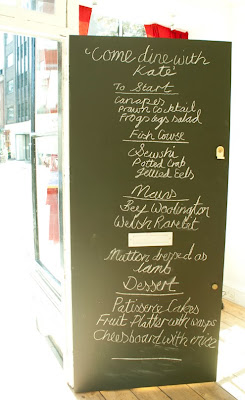 "Come dine with
Kate"
To Start
Canapes
Prawn Cocktail
Frogs legs salad
Fish Course
Sewshi
Potted Crab
Jellied Eels
Mains
Beef Woolington
Welsh Rarebit
Mutton dressed as
lamb
Dessert
Patisserie Cakes
Fruit Platter with wasps
Cheeseboard with mice